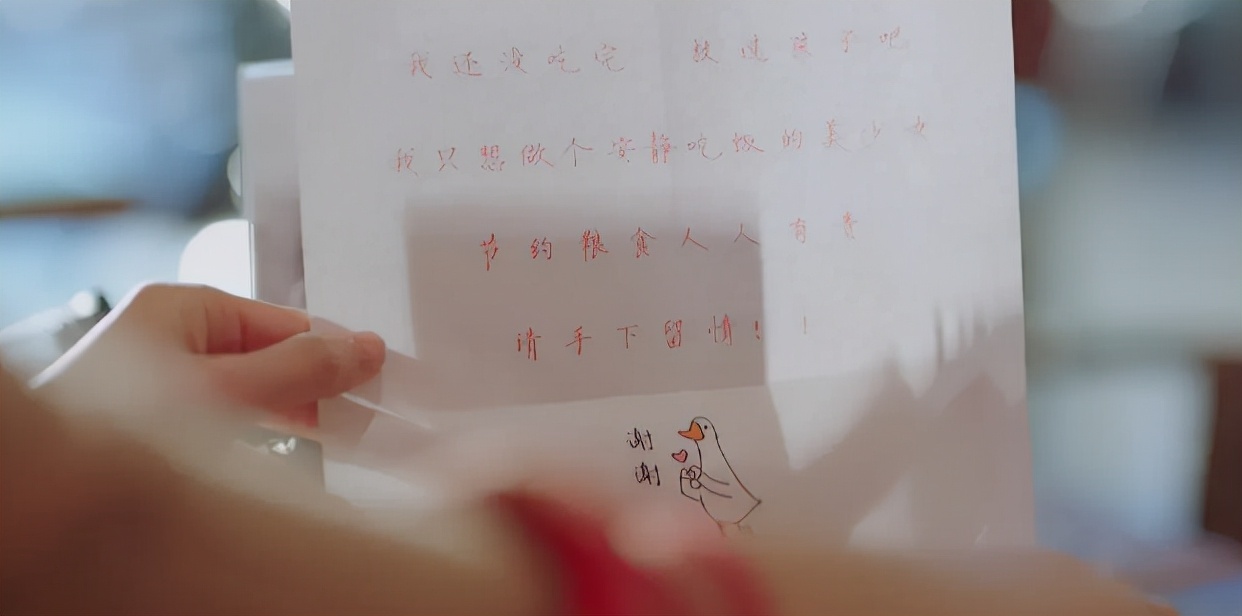 我还没吃完 放过孩子吧
我只想做个安静吃饭的美少女
节约粮食人人有责
请手下留情！！
谢
谢